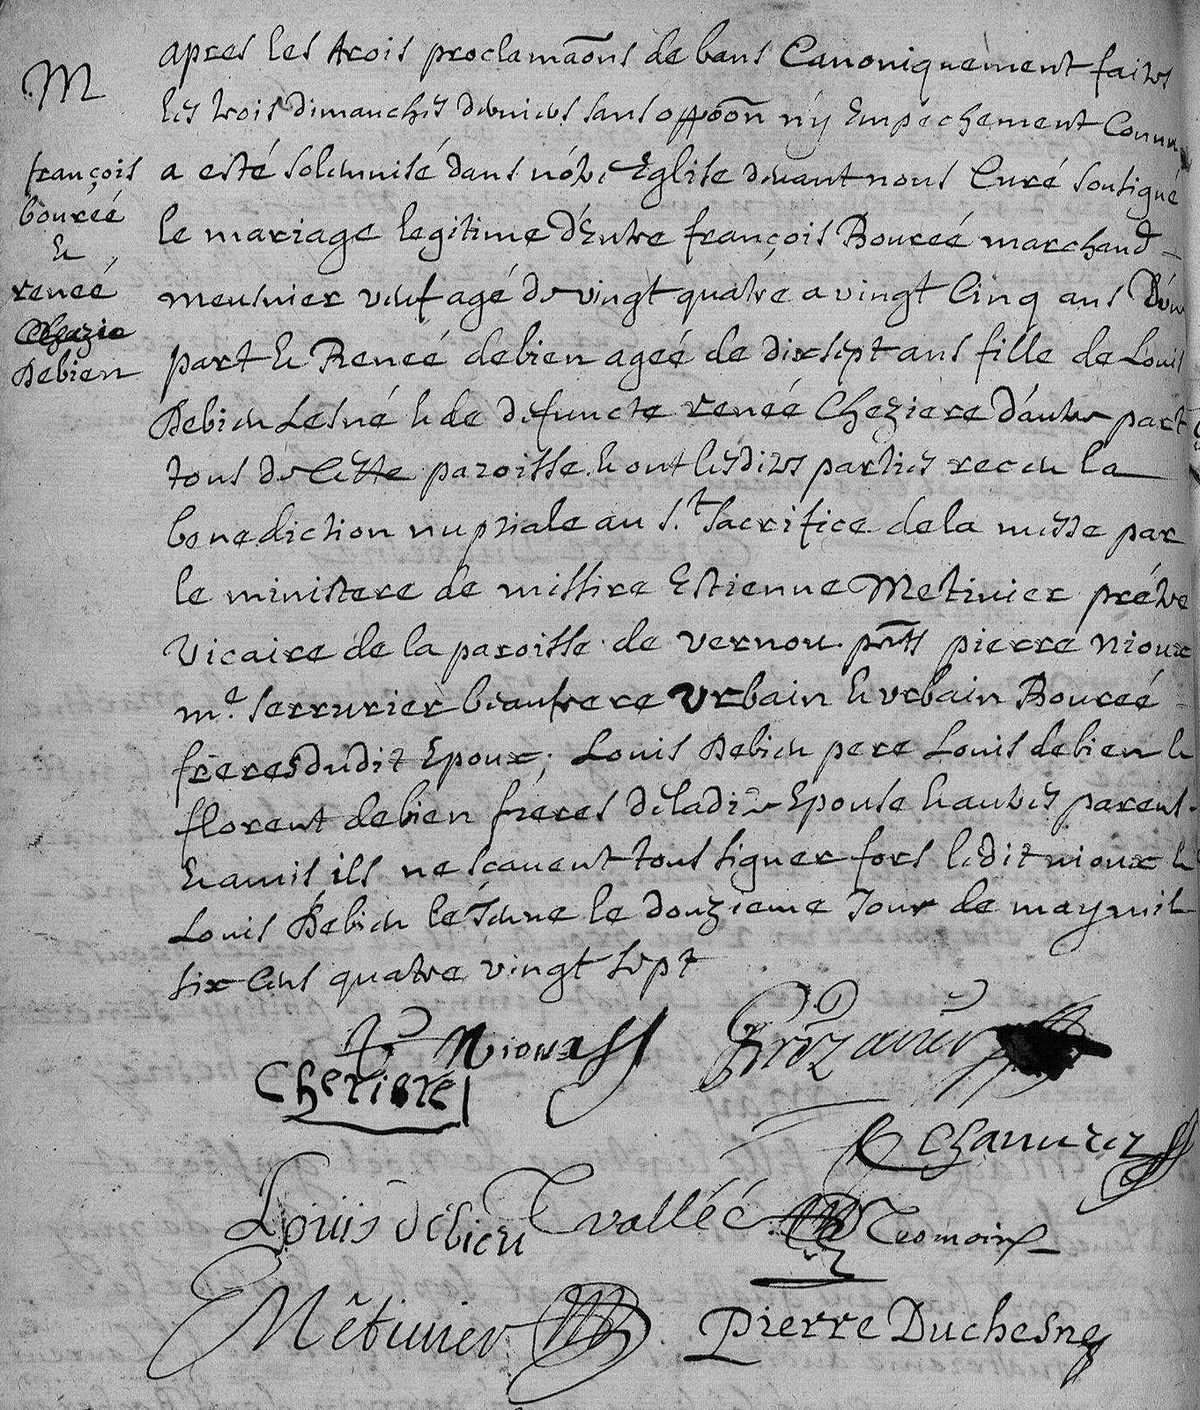 M
françois
boureé
&
reneé
Debien
apres les trois proclamaõns de bans Canoniquement faites
les trois dimanches derniers sans oppõon n'y Empechement Connu
a esté solemnisé dans nõtre Eglise devant nous Curé sousigné
le mariage legitime d'Entre françois Boureé marchand
meusnier veuf agé de vingt quatre a vingt Cinq ans D'une
part & Reneé debien ageé de dix sept ans fille de Louis
Debien Lesné & de defuncte reneé Cheziere d'autre part
tous de Cette paroisse & ont lesdites parties receu la
benediction nuptiale au s.t Sacrifice de la messe par
le ministere de missire Estienne Metivier prétre
Vicaire de la paroisse de vernou. pñts pierre nioux
m.e serrurier beaufrere Urbain & urbain Boureé
freres dudit Epoux; Louis Debien pere Louis debien &
florent debien freres deladite Epouse & autres parens
& amis ils ne scavent tous signer fors ledit nioux &
Louis Debien le Jeune le douzieme Jour de may mil
six cens quatre vingt sept
Nioux
Louis debien
T vallée
Mêtivier
Pierre Duchesne